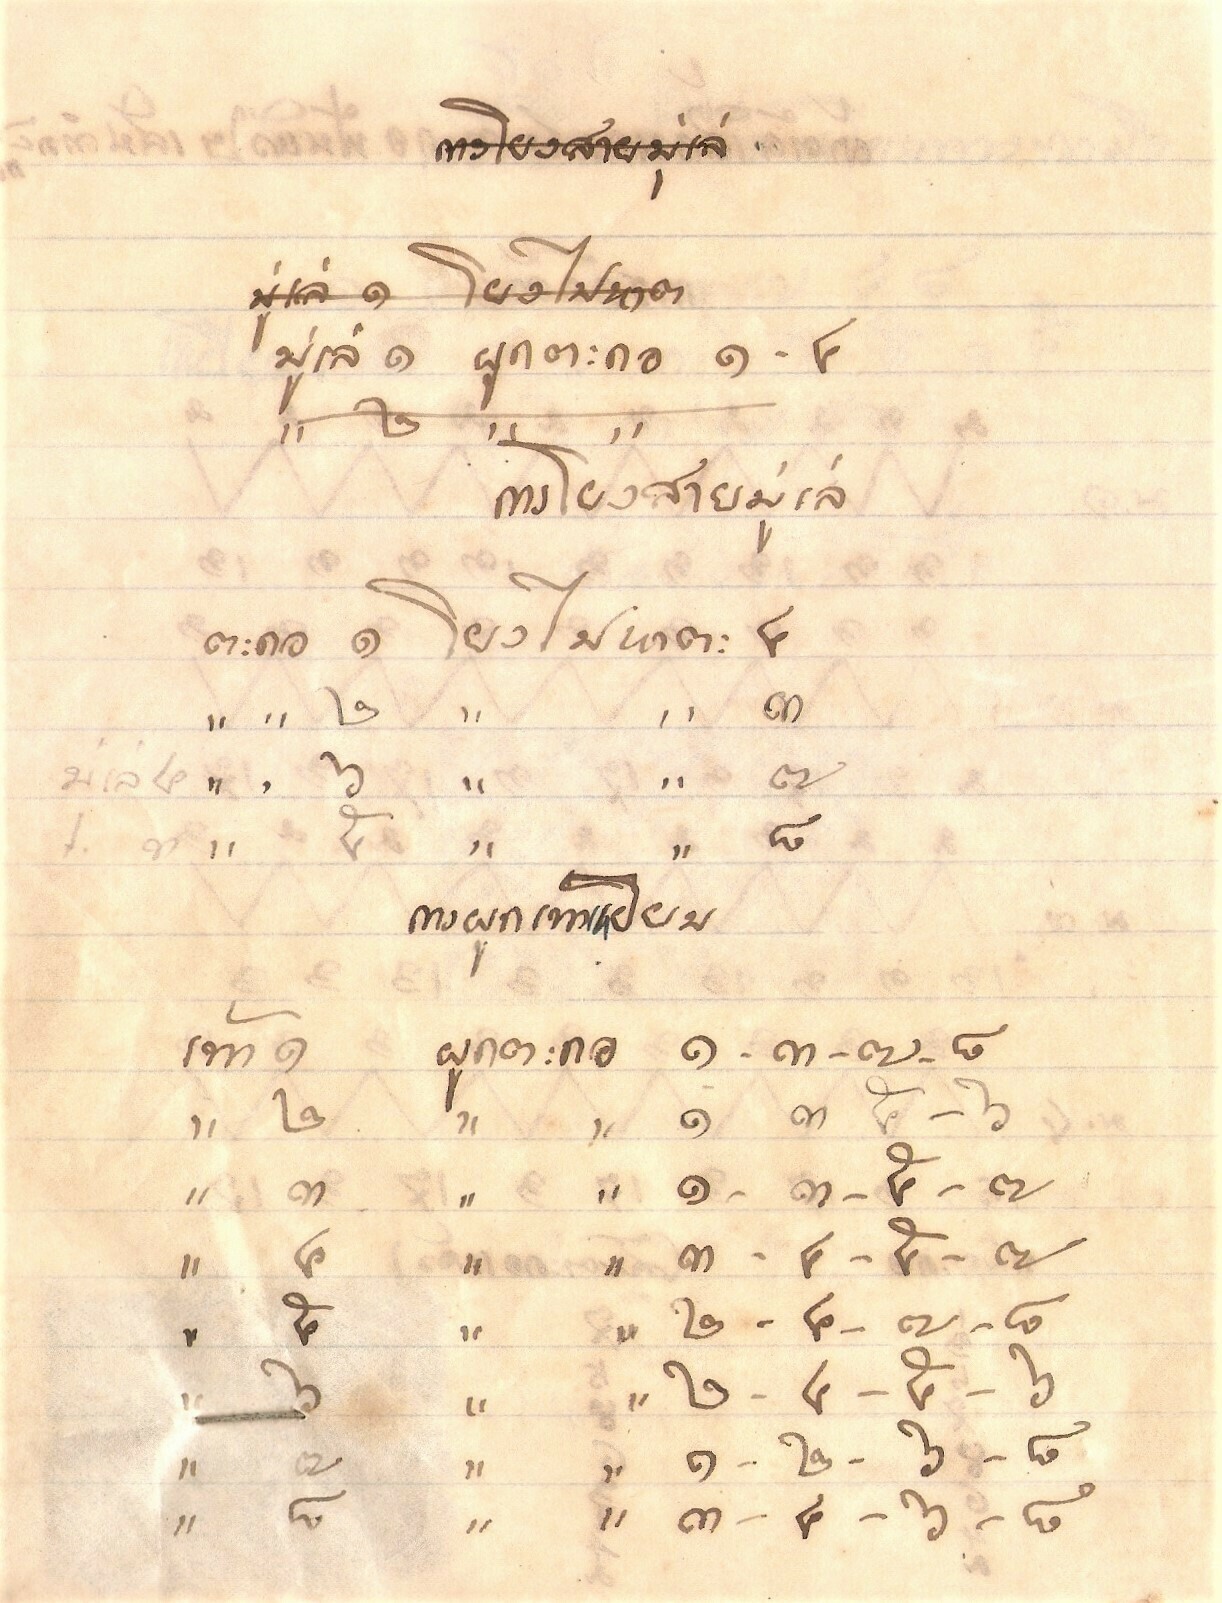 การโยงสายมู่เล่
มู่เล่ ๑ โยงไม้หาต
มู่เล่ ๑ ผูกตะกอ ๑ - ๔
" ๒ " "
การโยงสายมู่เล่
ตะกอ ๑ โยงไม้หาตะ ๔
" " ๒ " " ๓
มู่เล่ ๔ " " ๖ " " ๗
๓ " ๕ " " ๘
การผูกเท้าเหยียบ
เท้า ๑ ผูกตะกอ ๑ - ๓ - ๗ - ๘
" ๒ " " ๑ ๓ ๕ - ๖
" ๓ " " ๑ - ๓ - ๕ - ๗
" ๔ " " ๓ - ๔ - ๕ - ๗
" ๕ " " ๒ - ๔ - ๗ - ๘
" ๖ " " ๒ - ๔ - ๕ - ๖
" ๗ " " ๑ - ๒ - ๖ - ๘
" ๘ " " ๓ - ๔ - ๖ - ๘